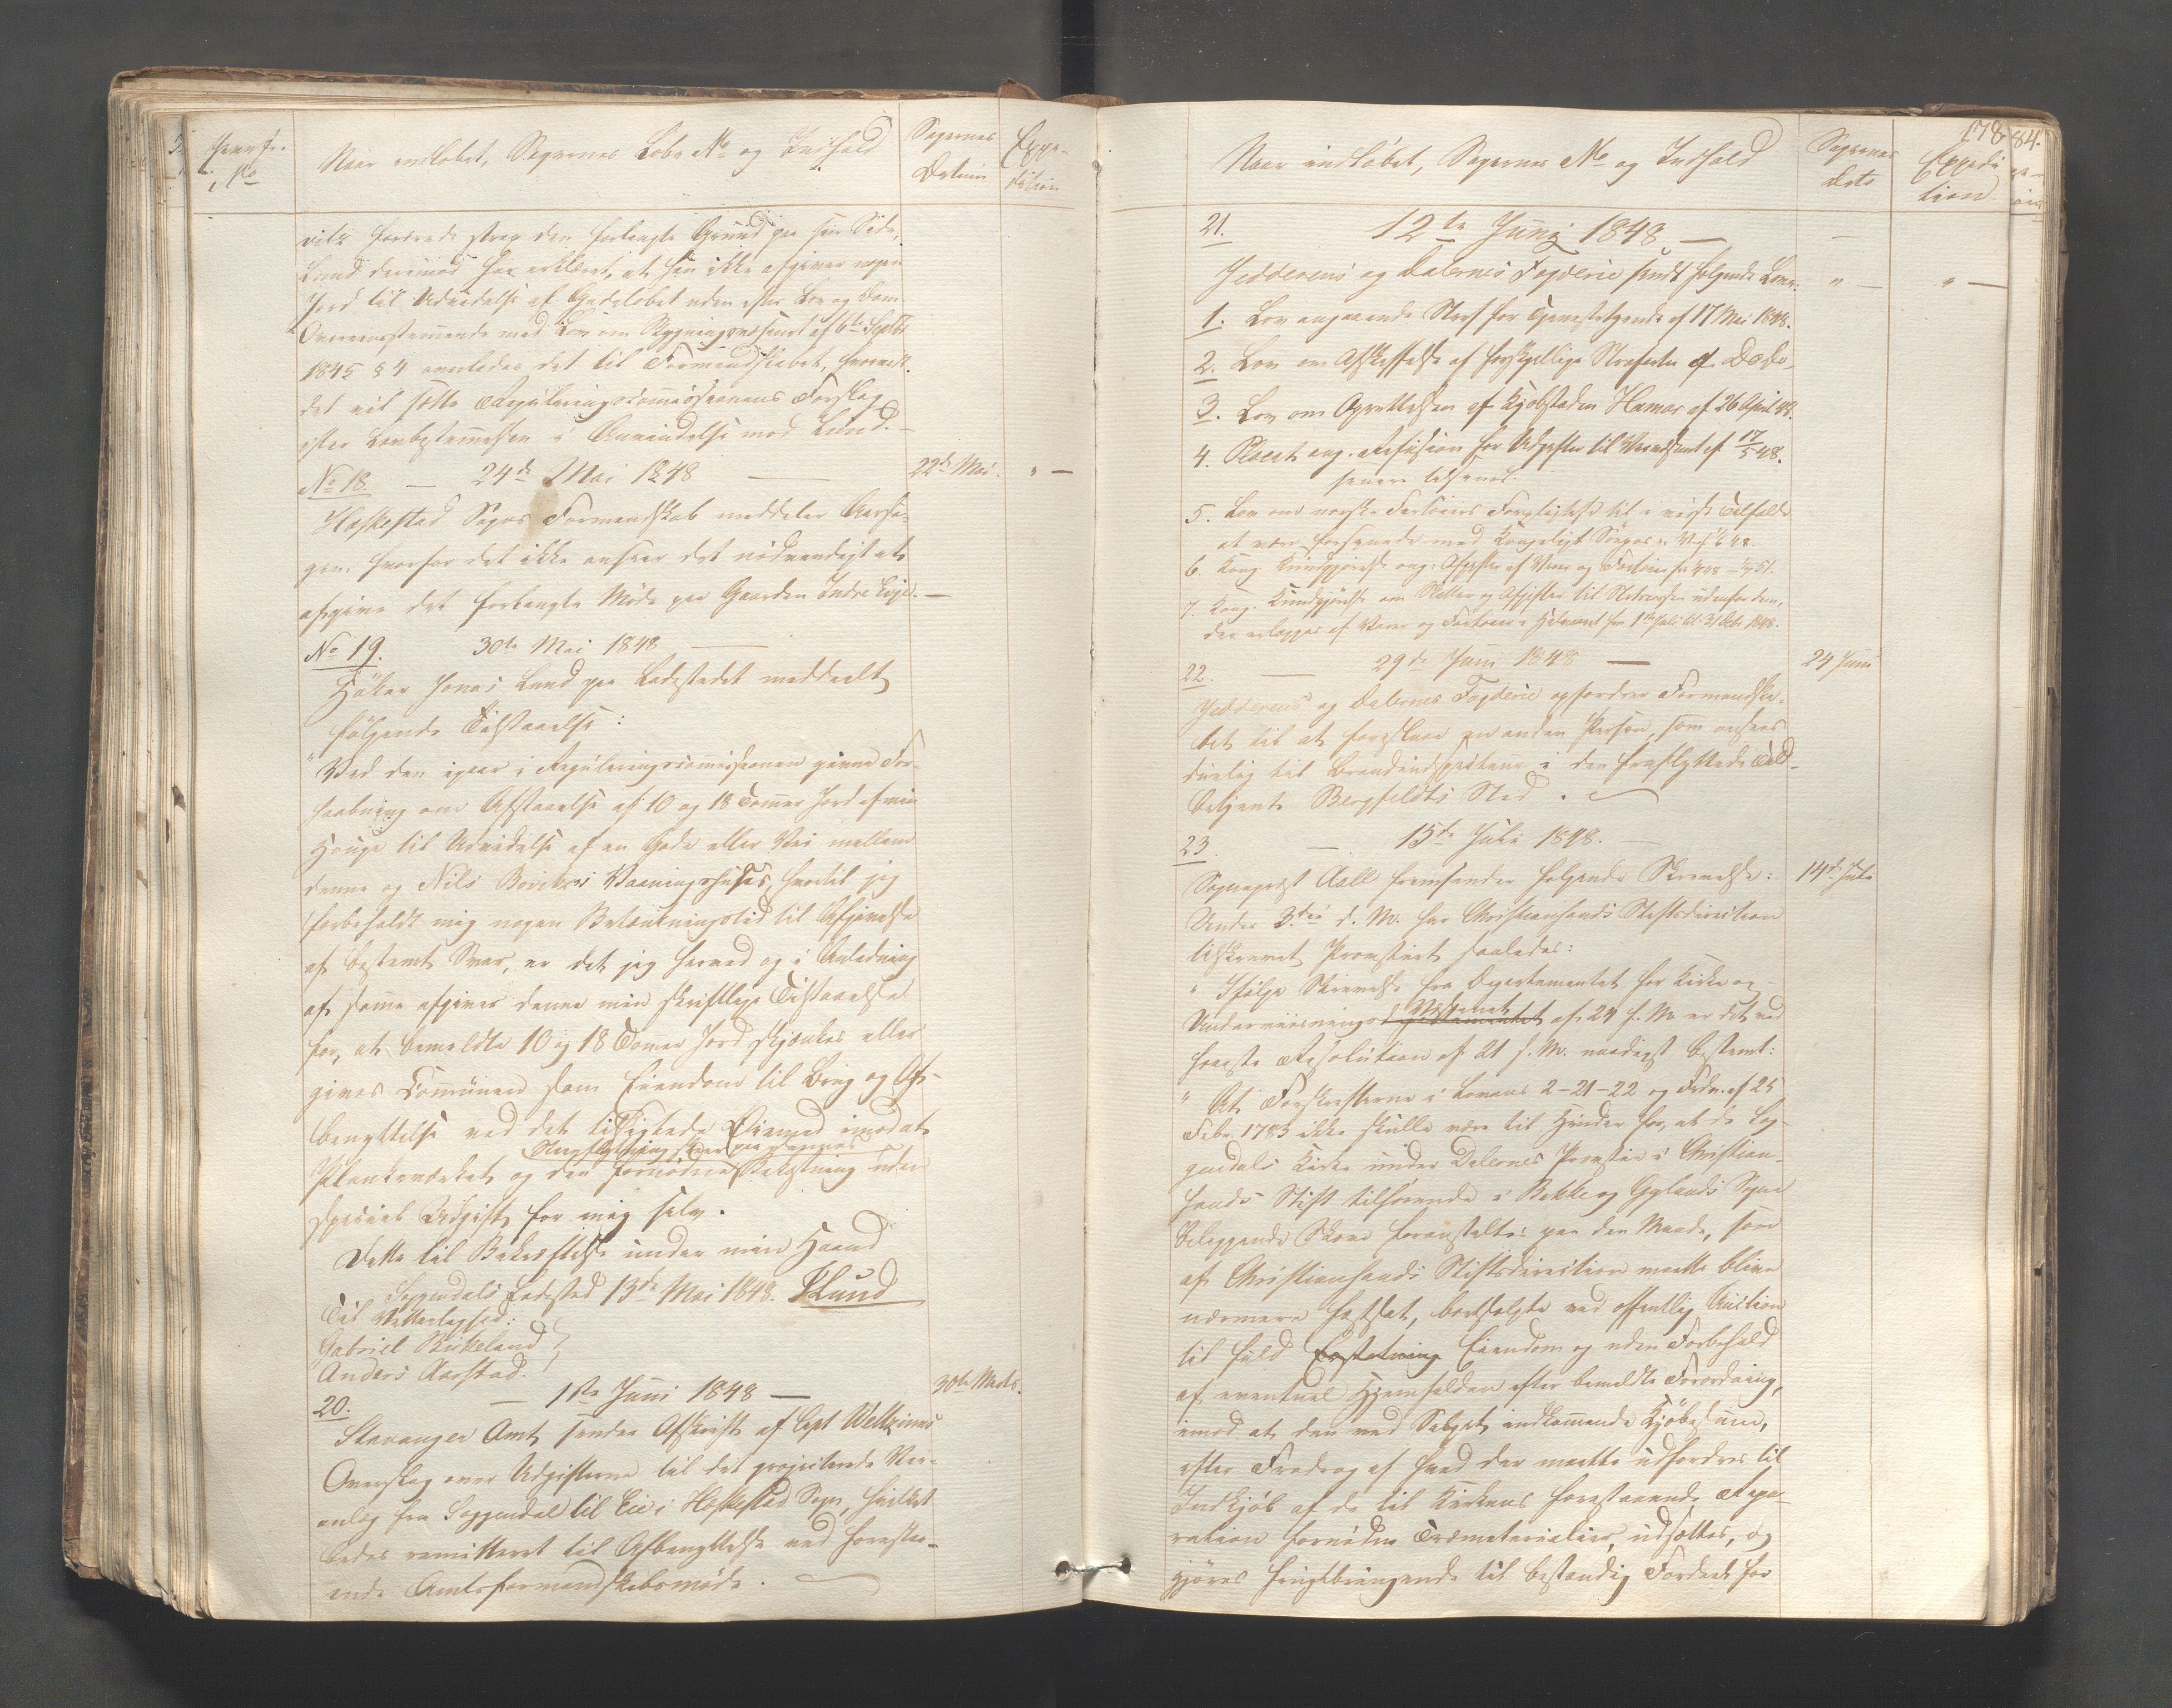 Naar indløbet, Sagernes Løbe No og Indhold
Sagernes
Datum
Expe-
dition
vilde foretrede strax den forlangte Grund paa sin Side,
Lund derimod har erklæret, at han ikke afgiver nogen
Jord til Udvidelse af Gadeløbet uden efter Lov og Dom.
Overeensstemmende med Lov om Bygningsvæsenet af 6te Septbr
1845 § 4 overlades det til Formandskabet, hvorvidt
det vil sætte Reguleringscommissionens Forslag
efter Lovbestemmelsen i Anvendelse mod Lund.
No 18. — 24de Mai 1848 —
22de Mai.
Heskestad Sogns Formandskab meddeler Aarsa-
gen, hvorfor det ikke anseer det nødvendigt at
afgive det forlangte Møde paa Gaarden Indre Eige. —
No 19. 30te Mai 1848 —
Høker Jonas Lund paa Ladestedet meddeelt
følgende Tilstaaelse:
" Ved den igaar i Reguleringscommissionen givne For-
haabning om Afstaaelse af 10 og 18 Tommer Jord af min
Hauge til Udvidelse af en Gade eller Vei mellem
denne og Nils Vaaningshuses, hvortil jeg
forbeholdt mig nogen Betænkningstid til Afgivelse
af bestemt Svar, er det jeg herved og i Anledning
af samme afgiver denne min skriftlige Tilstaaelse
for, at bemeldte 10 og 18 Tommer Jord skjænkes eller
gives Communen som Eiendom til Brug og Af-
benyttelse ved det tilsigtede Øiemed imod at
Flytningen skeer paa dennes
Plankeværket og den fornødne Bekostning uden
speciel Udgift for mig selv.
Dette til Bekræftelse under min Haand
Soggendals Ladested 13de Mai 1848. JLund
Til Vitterlighed:
Gabriel Birkeland
Anders Aarstad.
20. — 1ste Juni 1848 —
30te Marts.
Stavanger Amt sender Afskrift af Capt Weltzines
Overslag over Udgifterne til det projecterede Vei-
anlæg fra Soggendal til Eie i Heskestad Sogn, hvilket
bedes remitteret til Afbenyttelse ved forestaa-
ende Amtsformandskabsmøde.
178
84.
Naar indløbet, Sagernes No og Indhold
Sagernes
Dato
Expedi
tion
21. 12te Juny 1848 —
Jedderens og Dalernes Fogderie sendt følgende Love:
1. Lov angaaende Straf for Tjenestetyende af 17 Mai 1848.
2. Lov om Afskaffelse af forskjellige Straffe af D. D.
3. Lov om Oprettelsen af Kjøbstaden Hamar af 26 April 48.
4. Placat ang. Refusion for Udgifter til Veivæsenet af 17/5 48.
senere tilsendt.
5. Lov om norske Fartøiers Forpligtelse til i visse Tilfælde
at være forsynede med Kongeligt Søepas
6. Kong. Kundgjørelse ang. Afgifter af Varer og Fartøier
7. Kong. Kundgjørelse om Skatter og Afgifter til Statscassen udenfor dem,
der erlægges af Varer og Fartøier i Halvaaret fra 1ste Juli til 31 Decbr 1848.
22. — 29de Juni 1848 —
24 Juni
Jedderens og Dalernes Fogderie opfordrer Formandska-
bet til at foreslaae en anden Person, som ansees
duelig til Branddirecteur i den fraflyttede Told-
betjent Bergfeldts Sted.
23. — 15de Juli 1848. —
14de Juli
Sognepræst Aall fremsender følgende Skrivelse:
Under 3die d. M. har Christiansands Stiftsdirection
tilskrevet Provstiet saaledes:
" Ifølge Skrivelse fra Departementet for Kirke og
Underviisnings Væsenet af 24 f. M. er det ved
høieste Resolution af 21 f. M. naadigst bestemt:
" At Forskrifterne i Lovens 2–21–22 og Frdn. af 25
Febr. 1783 ikke skulle være til Hinder for, at de Sog-
gendals Kirke under Dalernes Provstie i Christian-
sands Stift tilhørende i Bakke og Gylands Sogne
beliggende Skove foranstaltes paa den Maade, som
af Christiansands Stiftsdirection maatte blive
nærmere fastsat, bortsolgte ved offentlig Auction
til fuld Eiendom og uden Forbehold
af eventuel Hjemfalden efter bemeldte Forordning,
imod at den ved Salget indkommende Kjøbesum,
efter Fradrag af hvad der maatte udfordres til
Indkjøb af de til Kirkens forestaaende Repa-
ration fornødne Træmaterialier, udsættes, og
gjøres frugtbringende til bestandig Fordeel for